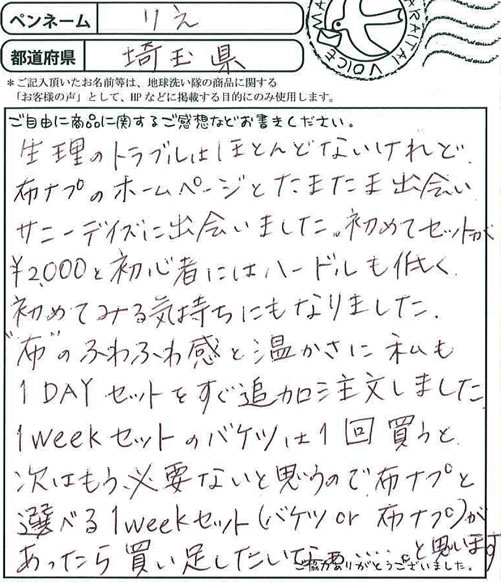 ペンネーム りえ
都道府県 埼玉県
ARAITAI VOICE
＊ご記入頂いたお名前等は、地球洗い隊の商品に関する
「お客様の声」として、HPなどに掲載する目的にのみ使用します。
ご自由に商品に関するご感想などお書きください。
生理のトラブルはほとんどないけれど、
布ナプのホームページとたまたま出会い
サニーデイズに出会いました。初めてセットが
¥2,000と初心者にはハードルも低く、
初めてみる気持ちにもなりました。
"布"のふわふわ感と温かさに私も
1DAYセットをすぐ追加注文しました。
1weekセットのバケツは1回買うと、
次はもう必要ないと思うので布ナプと
選べる1weekセット(バケツor布ナプ)が
あったら買い足したいなぁ……。と思います
ご協力ありがとうございました。